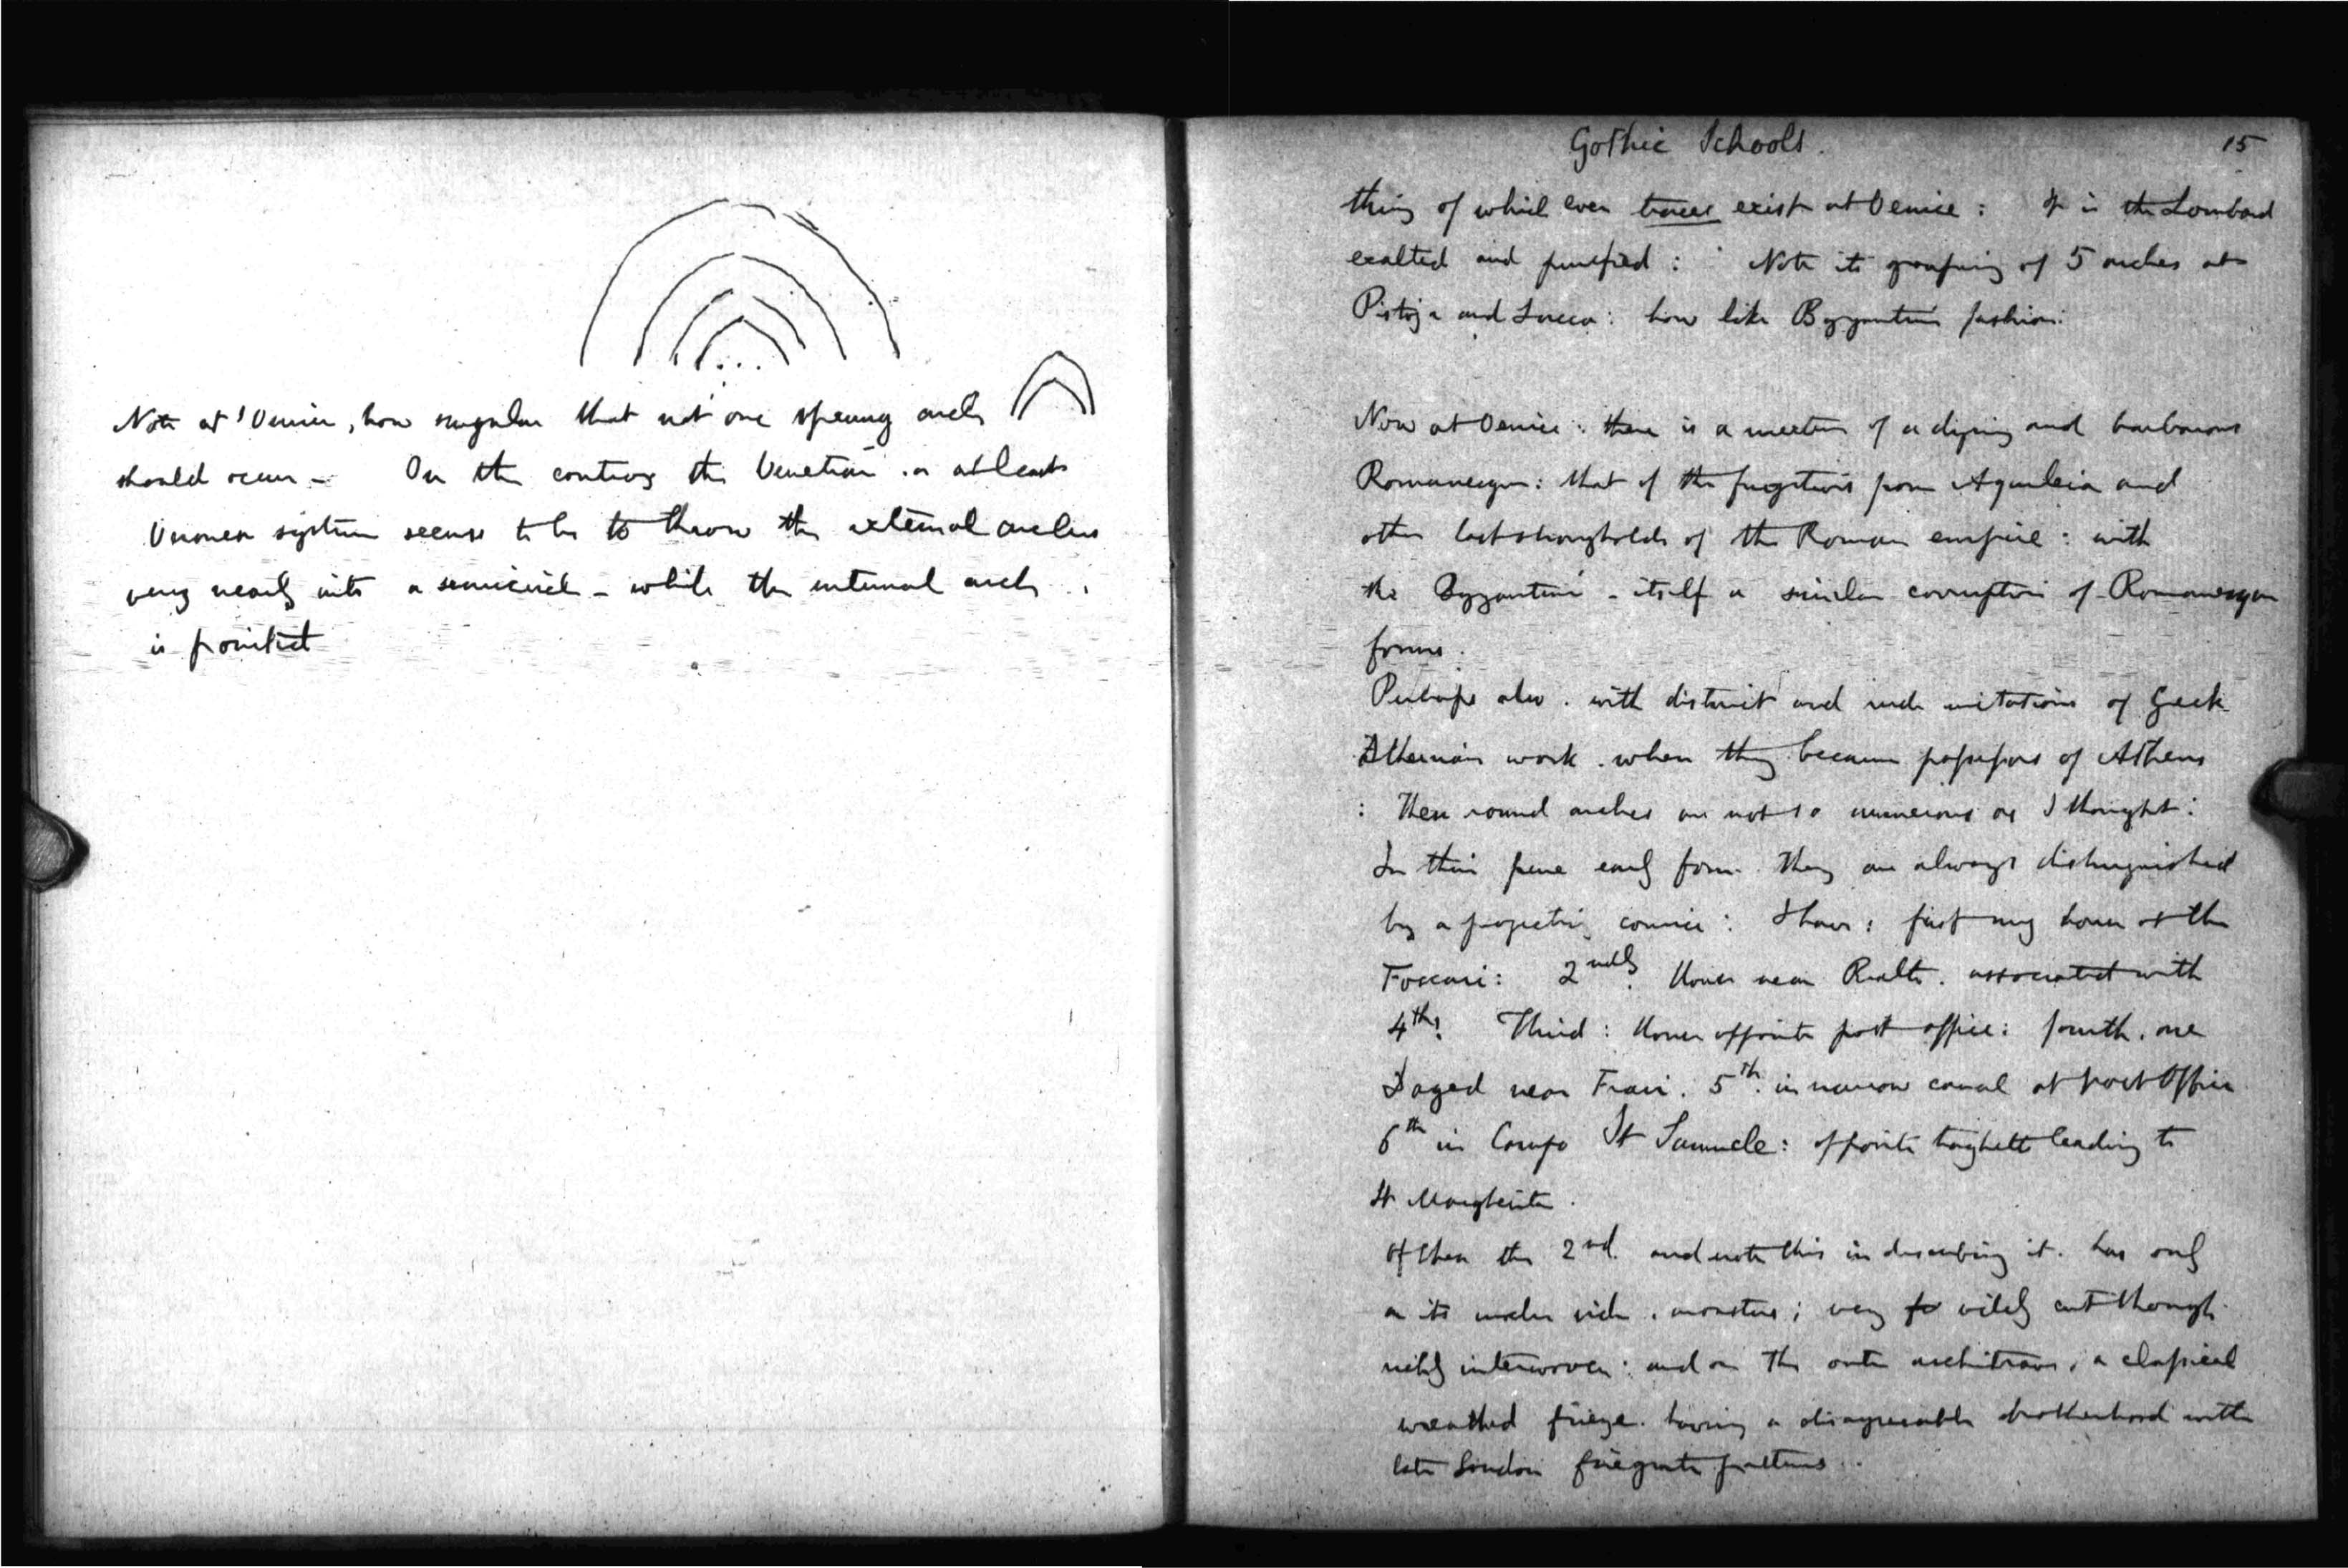 Note at Venice, how singular that not one sprung arch
should occur - On the contrary the Venetian . or at least
Veronese system seems to be to throw the external arches
very nearly into a semicircle - while the internal arch
is pointed
Gothic Schools.
15
thing of which even traces exist at Venice: It is the Lombard
exalted and purified: Note its grouping of 5 arches at
Pistoja and Lucca: how like Byzantine fashion:
Now at Venice: there is a meeting of a dying and barbarous
Romanesque: that of the fugitives from Aquileia and
other last strongholds of the Roman empire: with
the Byzantine - itself a similar corruption of Romanesque
forms.
Perhaps also. with distinct and rude imitations of Greek
Athenian work. when they became possessors of Athens
: These round arches are not so numerous as I thought:
In their pure early form. they are always distinguished
by a projecting cornice: I have: first my house at the
Foscari: 2ndly. House near Rialto. associated with
4th. Third: House opposite post office: fourth. one
Daged near Frari. 5th. in narrow canal at post Office
6th in Campo St Samuele: opposite traghetto leading to
St Margherita.
Of these the 2nd. and note this in describing it. has only
on its under side. monsters; very vilely cut though
richly interwoven: and on the outer architrave, a classical
wreathed frieze. having a disagreeable brotherhood with
late London firegrate patterns..